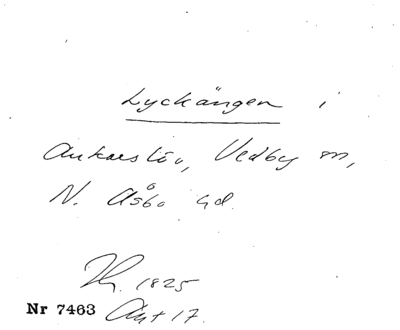 Lyckängen i
Ankarslöv, Vedby sn,
N. Åsbo hd.
1825
Nr 7463 Akt 17.